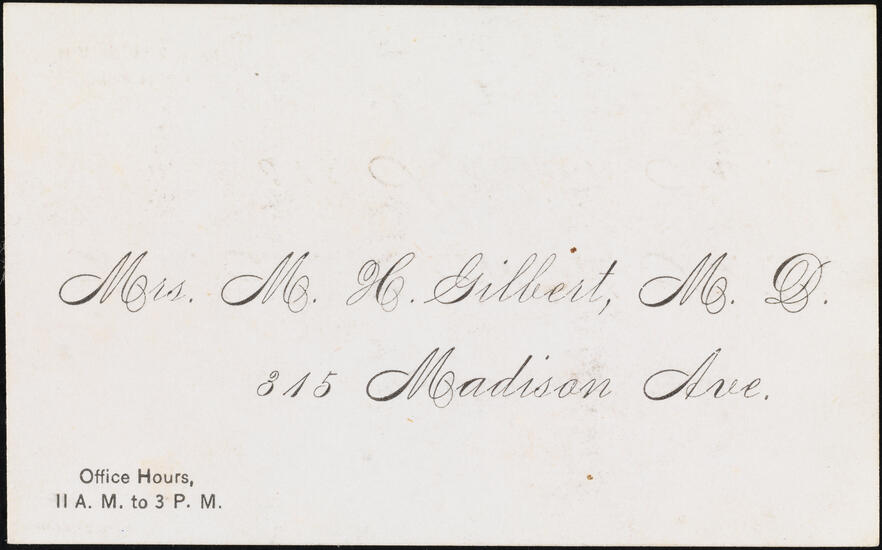 Mrs. M. H. Gilbert, M. D.
315 Madison Ave.
Office Hours,
11 A. M. to 3 P. M.